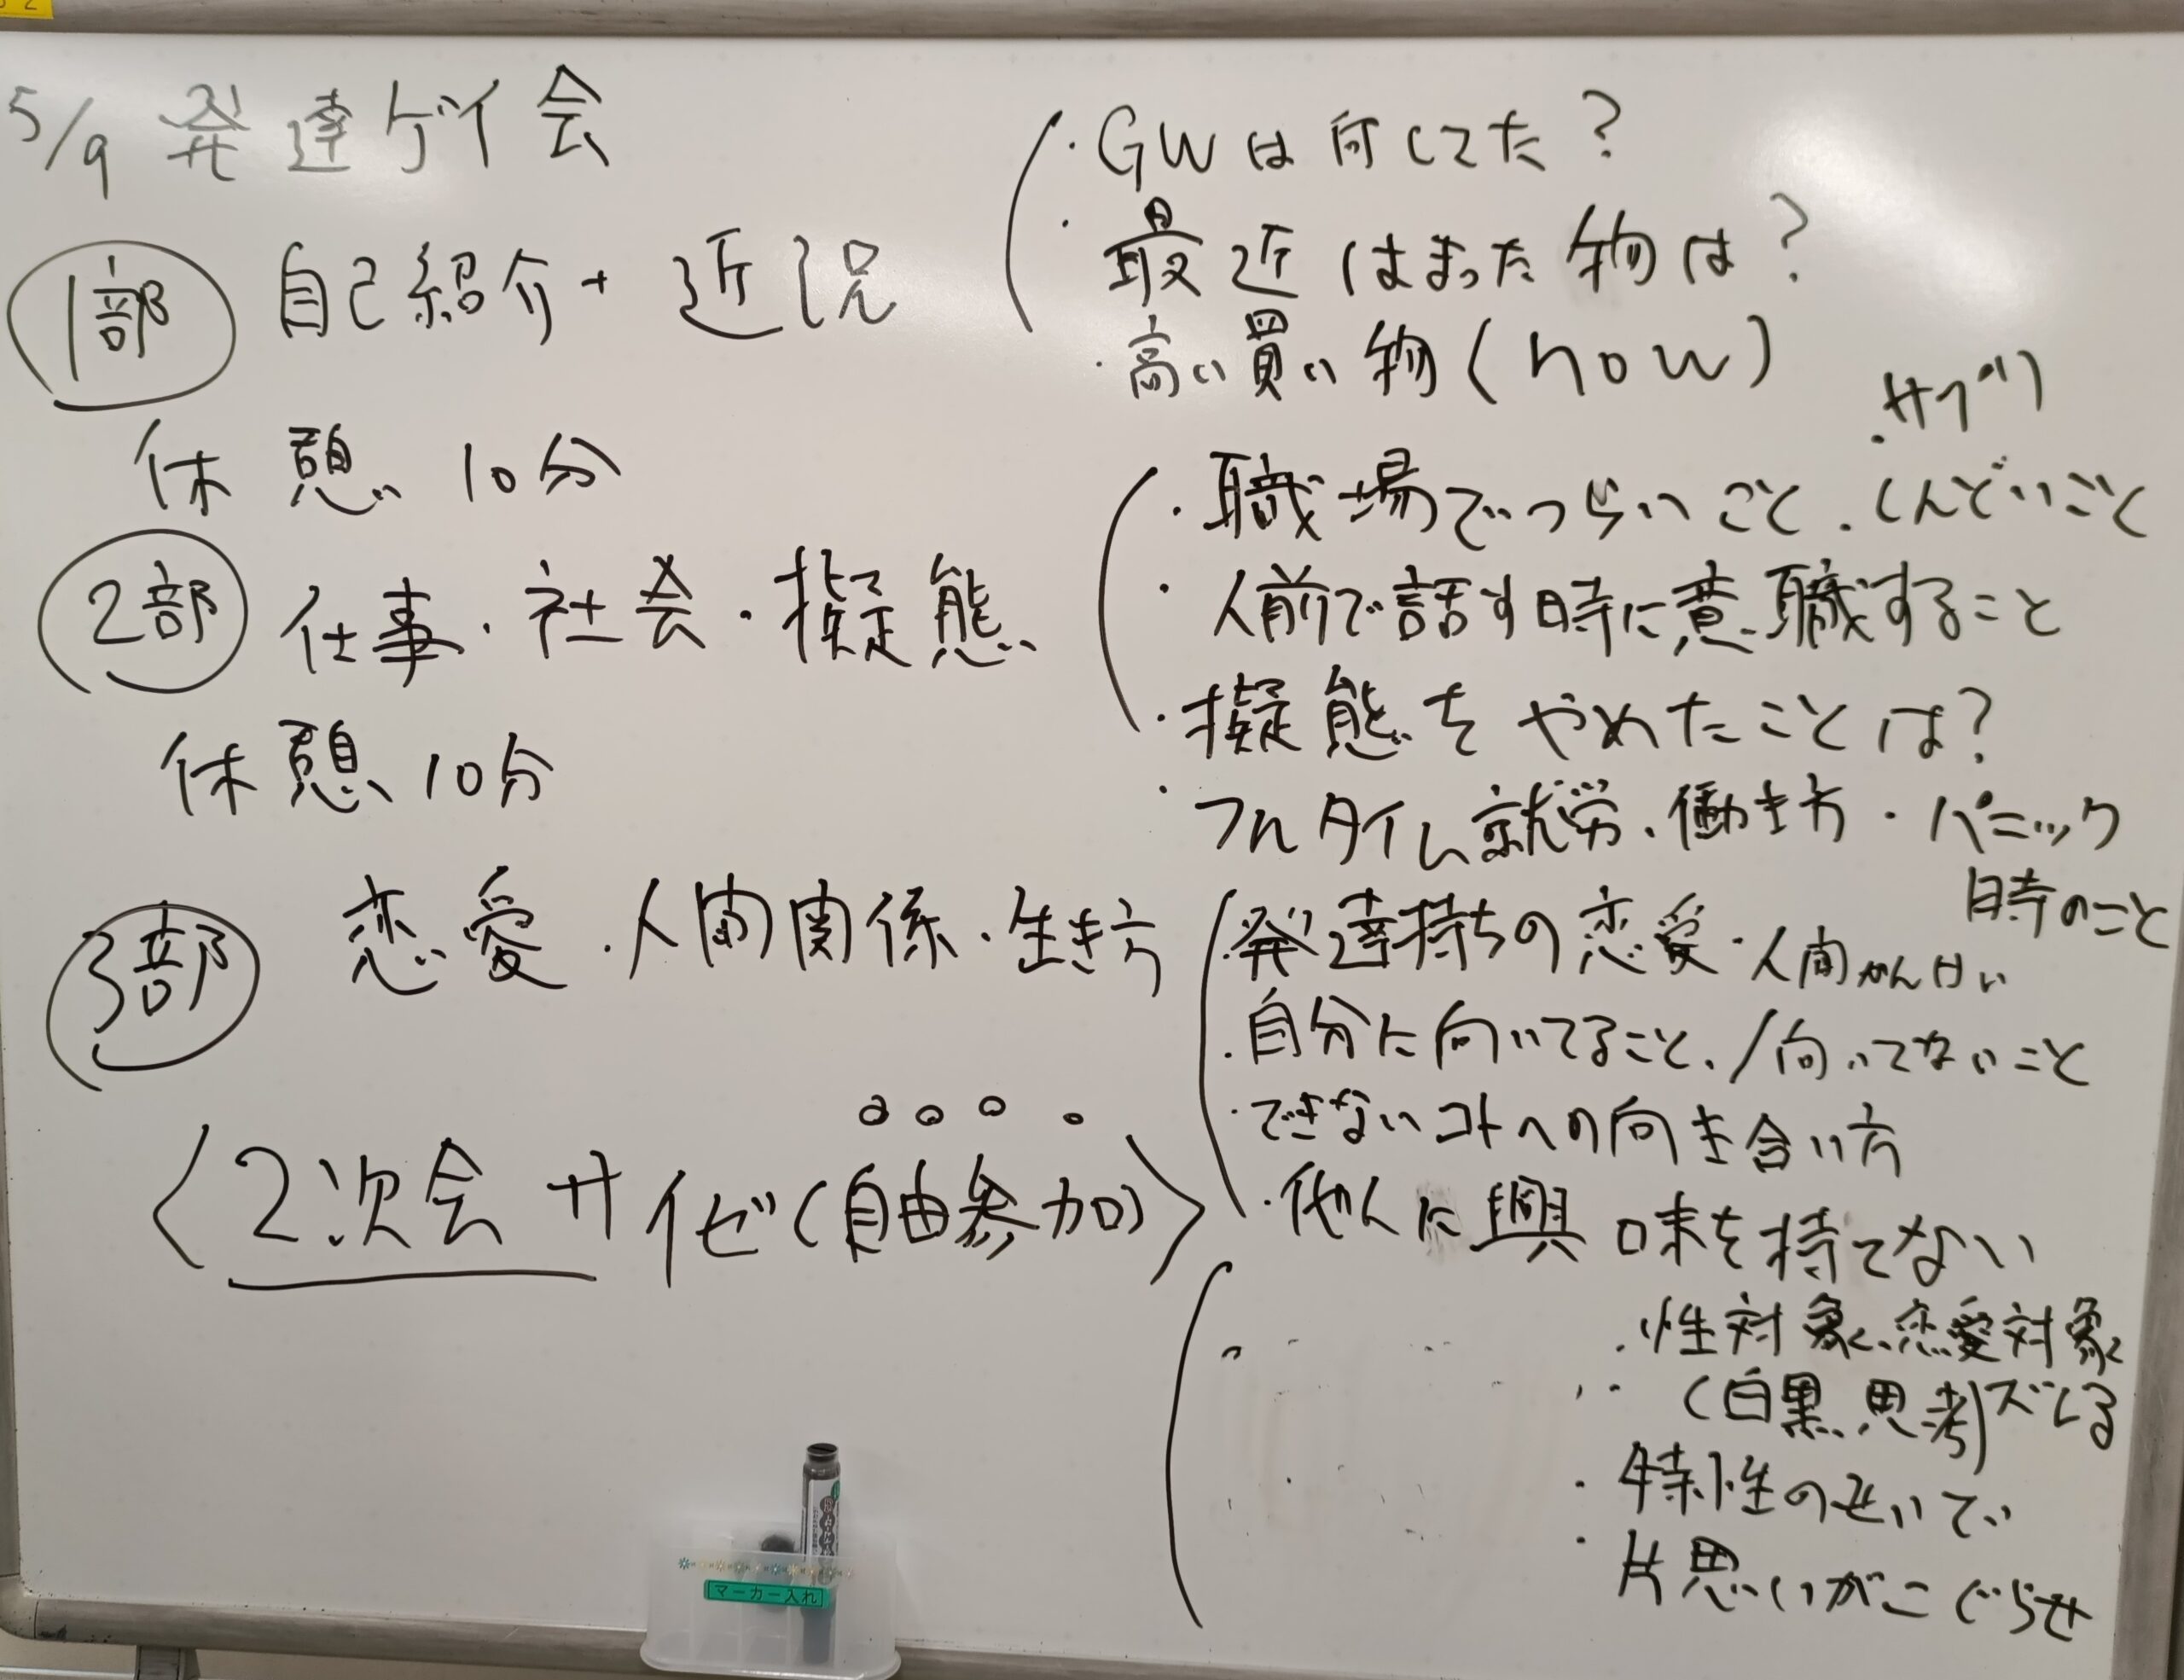 5/9 発達ゲイ会
1部 自己紹介+近況
・GWは何してた?
・最近はまった物は?
・高い買い物(now)
休憩 10分
2部 仕事・社会・擬態
・サプリ
・職場でつらいこと・しんどいこと
・人前で話す時に意識すること
・擬態をやめたことは?
・フルタイム就労、働き方・パニック
時のこと
休憩 10分
3部 恋愛・人間関係・生き方
・発達持ちの恋愛・人間かんけい
・自分に向いてること、/向いてないこと
・できないコトへの向き合い方
・他人に興味を持てない
・性対象、恋愛対象
(白黒思考)ズレる
・特性のせいで
・片思いがこじらせ
〈2次会 サイゼ(自由参加)〉
マーカー入れ